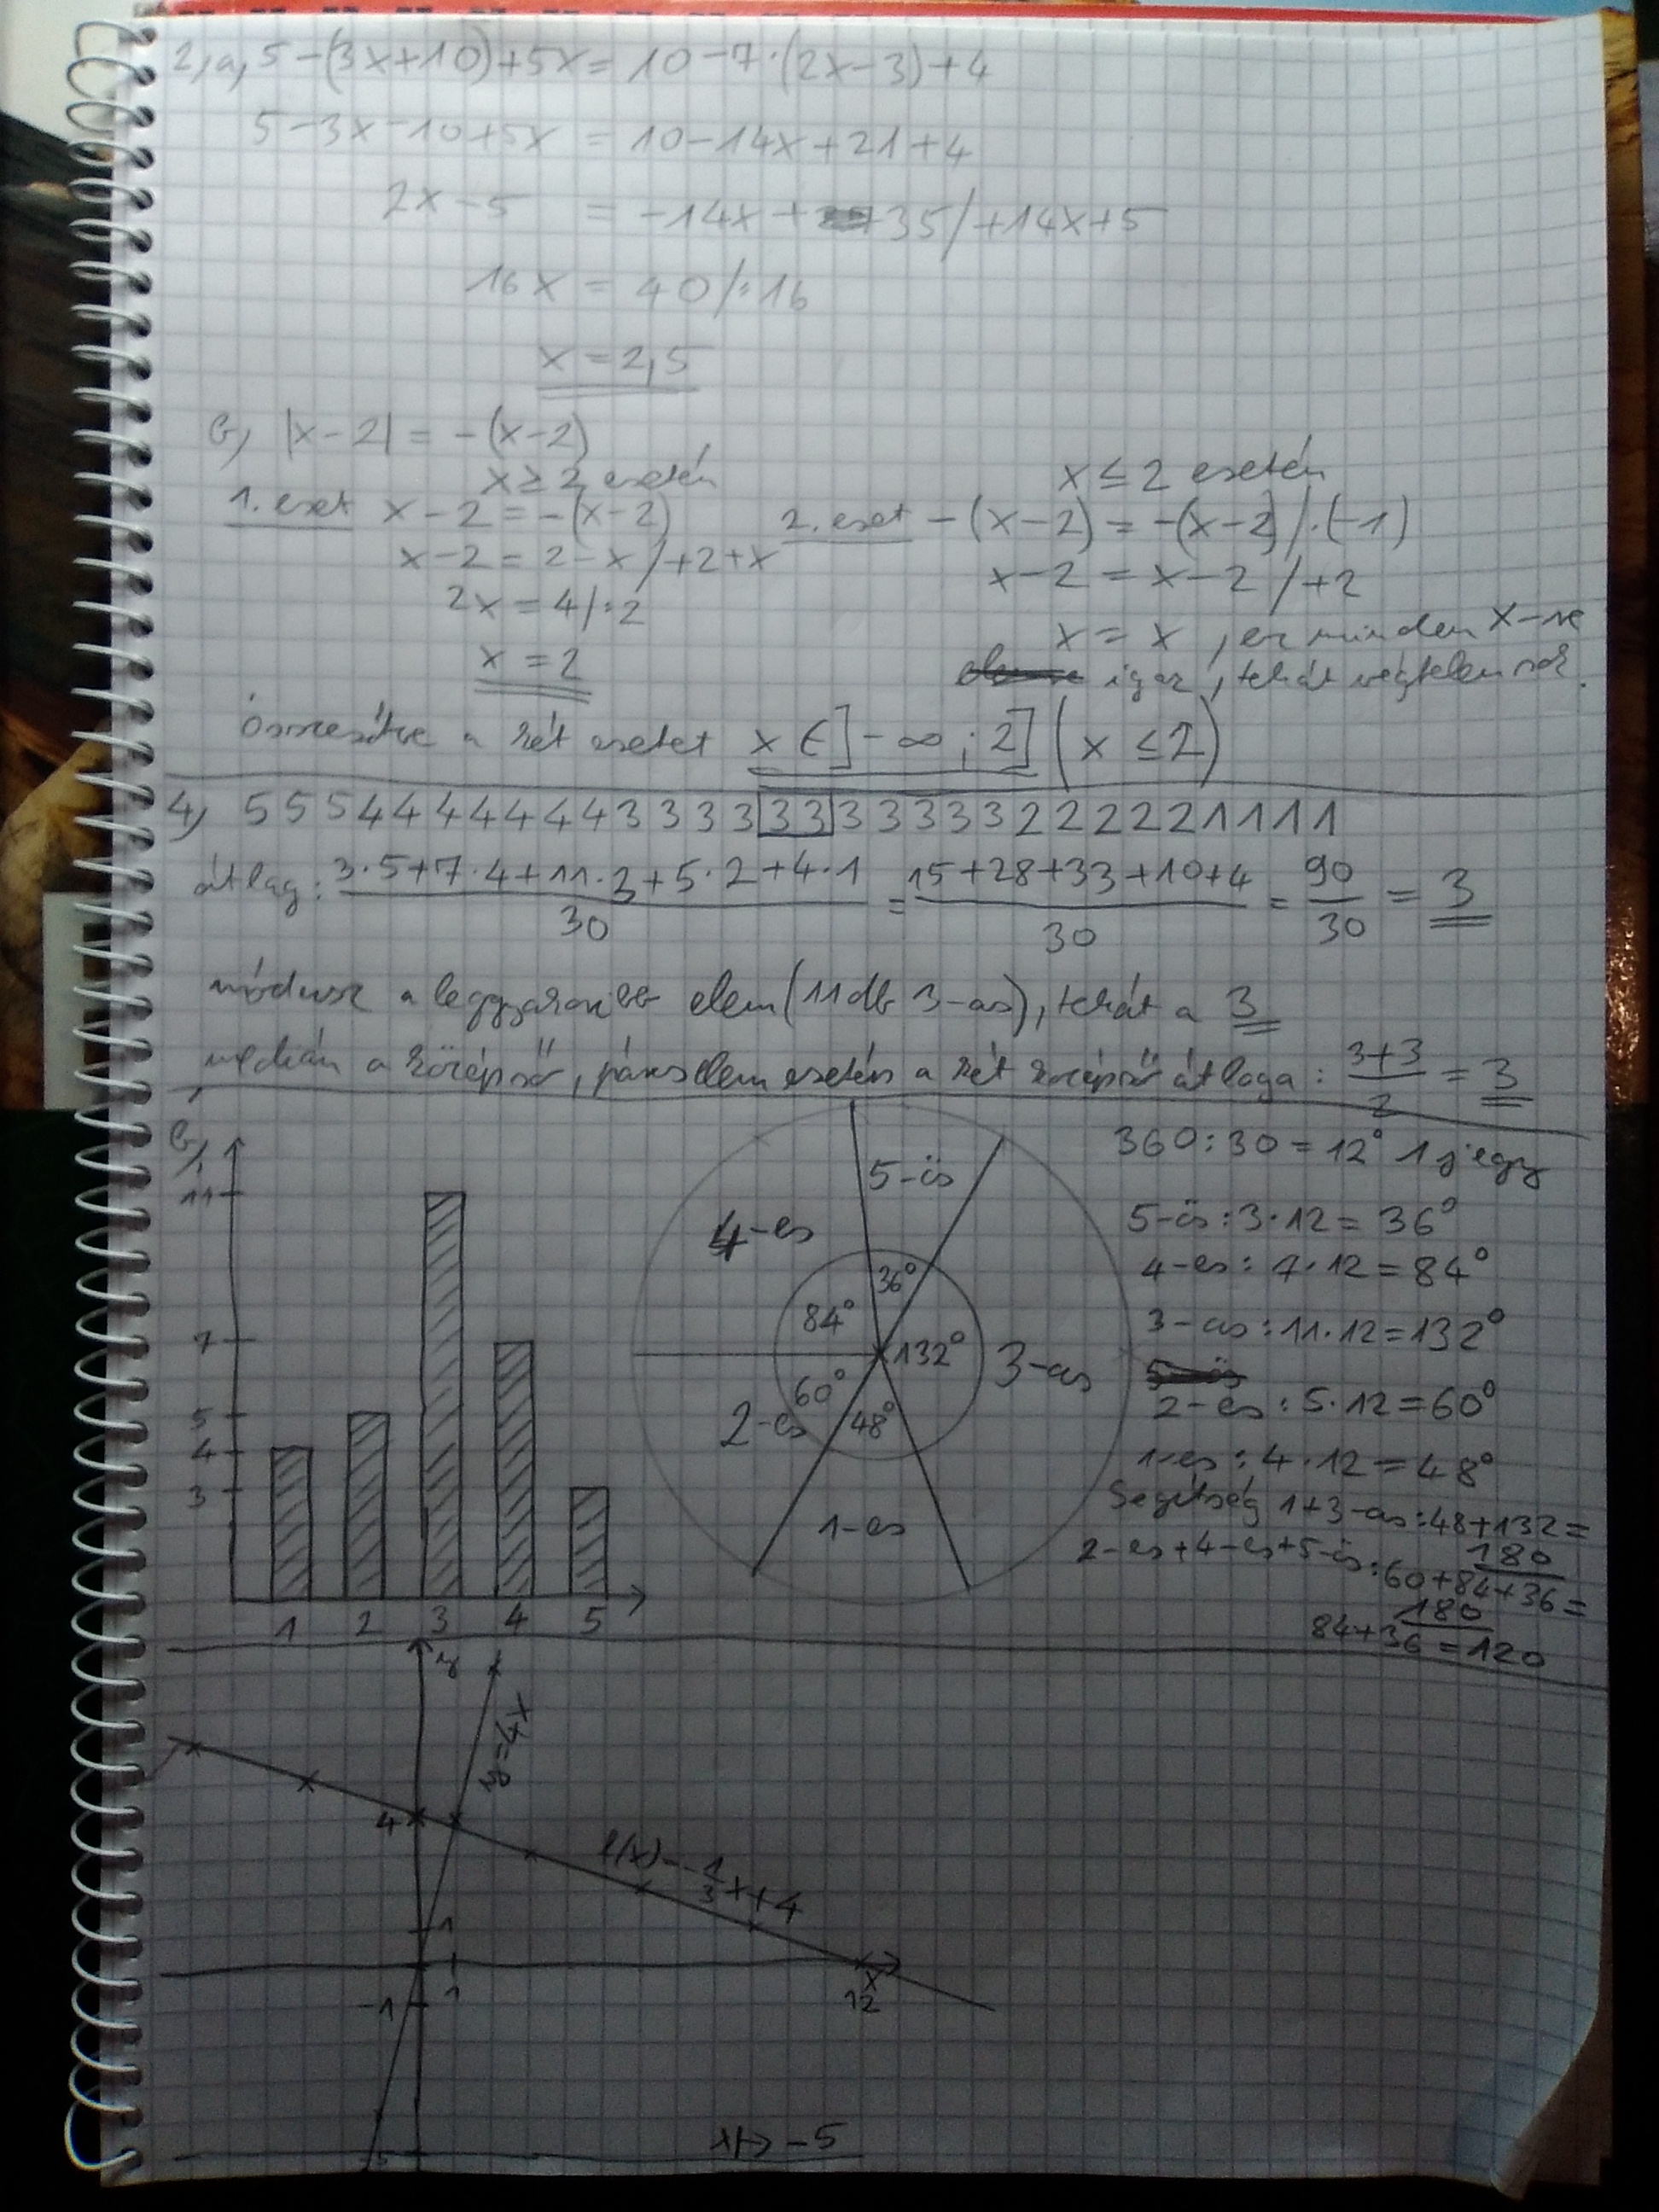 2, a, 5-(3x+10)+5x = 10-7·(2x-3)+4
5-3x-10+5x = 10-14x+21+4
2x-5 = -14x+35 /+14x+5
16x = 40 /:16
x = 2,5
b, |x-2| = -(x-2)
x≥2 esetén
1. eset x-2 = -(x-2)
x-2 = 2-x /+2+x
2x = 4 /:2
x = 2
x≤2 esetén
2. eset -(x-2) = -(x-2) /·(-1)
x-2 = x-2 /+2
x = x, ez minden x-re
igaz, tehát végtelen sok.
összesítve a két esetet x∈]-∞;2] (x≤2)
4, 5 5 5 4 4 4 4 4 4 4 3 3 3 3 3 3 3 3 3 3 3 2 2 2 2 2 1 1 1 1
átlag: (3·5+7·4+11·3+5·2+4·1)/30 = (15+28+33+10+4)/30 = 90/30 = 3
módusz a leggyakoribb elem (11db 3-as), tehát a 3
medián a középső, páros elem esetén a két középső átlaga: (3+3)/2 = 3
b,
11
7
5
4
3
1 2 3 4 5
5-ös
4-es
36°
84°
132° 3-as
60°
2-es 48°
1-es
360:30 = 12° 1 jegy
5-ös: 3·12 = 36°
4-es: 7·12 = 84°
3-as: 11·12 = 132°
2-es: 5·12 = 60°
1-es: 4·12 = 48°
Segítség 1+3-as: 48+132 =
180
2-es+4-es+5-ös: 60+84+36 =
180
84+36 = 120
y
y=4x
4
f(x)=-1/3x+4
1
1
-1
x
12
-5
x↦-5